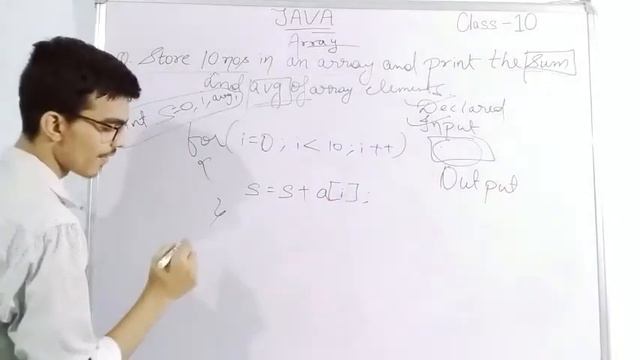 JAVA
Class-10
Array
Q. Store 10 nos in an array and print the sum
and avg of array elements.
int s=0, i, avg;
Declared
Input
for(i=0; i<10; i++)
{
Output
s=s+a[i];
}